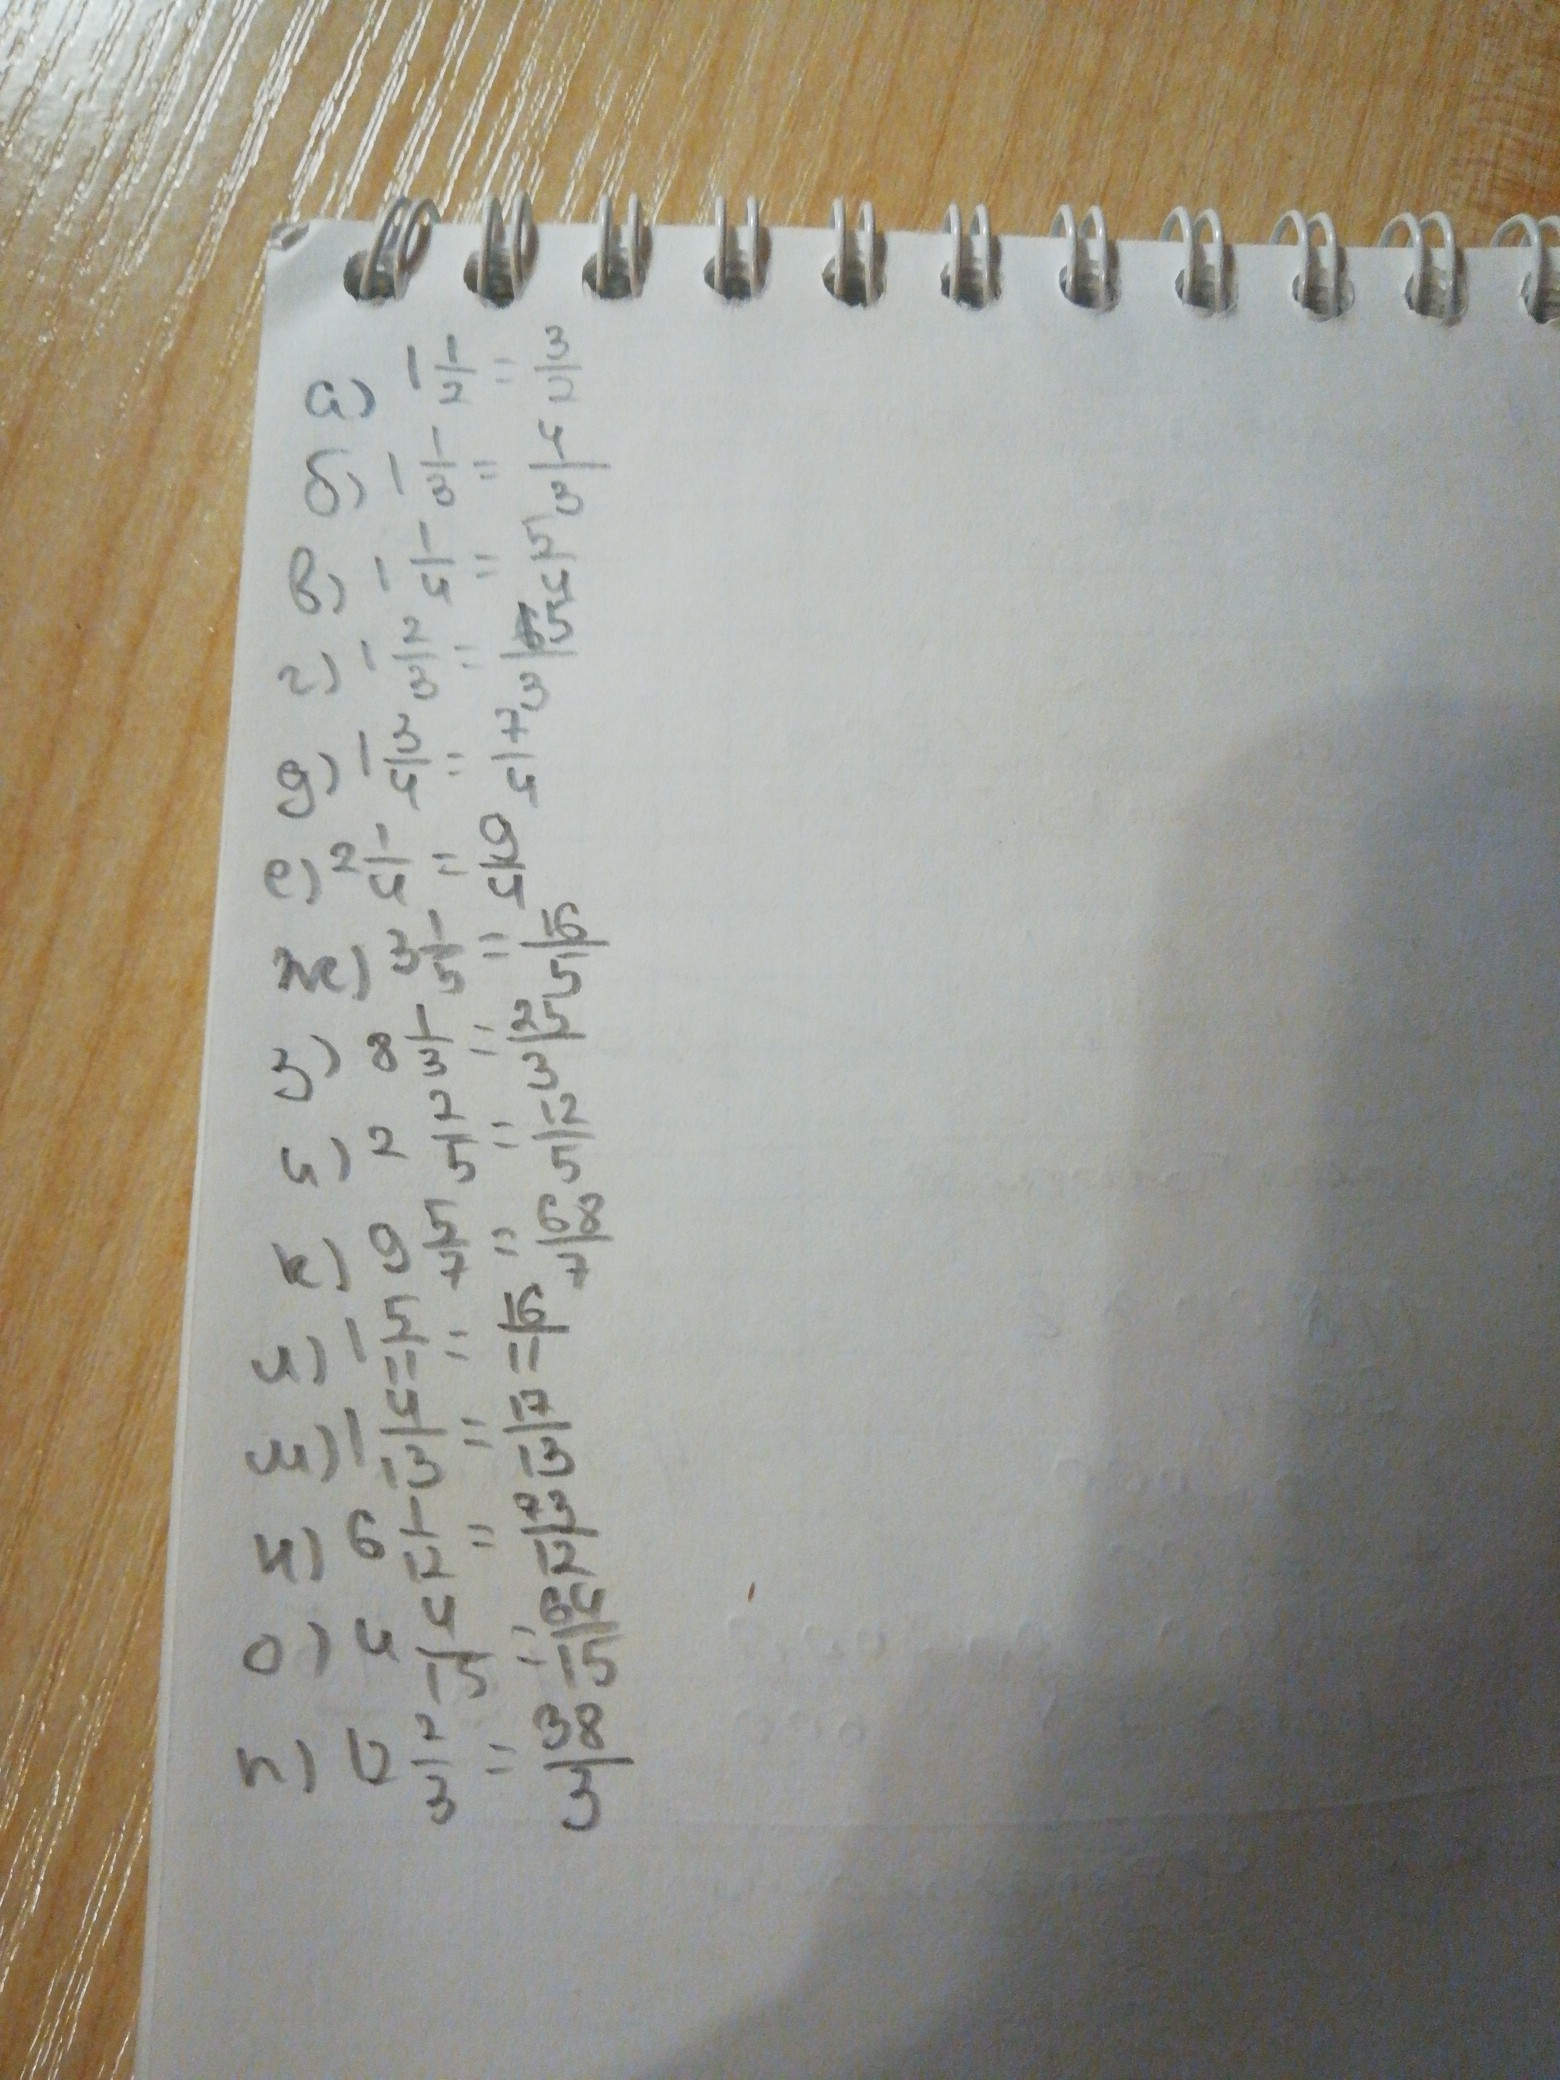 а) 1 1/2 = 3/2
б) 1 1/3 = 4/3
в) 1 1/4 = 5/4
г) 1 2/3 = 5/3
д) 1 3/4 = 7/4
е) 2 1/4 = 9/4
ж) 3 1/5 = 16/5
з) 8 1/3 = 25/3
и) 2 2/5 = 12/5
к) 9 5/7 = 68/7
л) 1 5/11 = 16/11
м) 1 4/13 = 17/13
н) 6 1/12 = 73/12
о) 4 4/15 = 64/15
п) 12 2/3 = 38/3